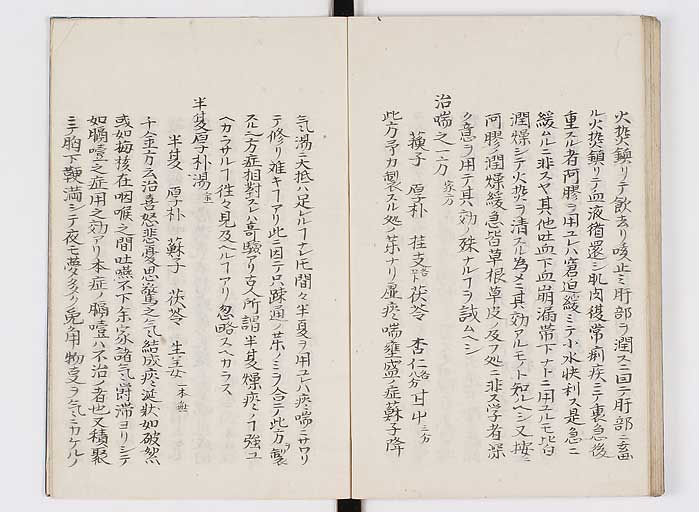 火勢鎮リテ飲去リ咳止ミ肝部ヲ潤スニ因テ肝部ニ畜
ル火勢鎮リテ血液循還シ肌肉復常痢疾ミテ裏急後
重スル者阿膠ヲ用ユレハ窘迫緩ミテ小水快利ス是急ニ
緩ムルニ非スヤ其他吐血下血崩漏帯下ナトニ用ユルモ皆
潤燥シテ火勢ヲ清スル為メニ其効アルモノト知ルヘシ又按ニ
阿膠ノ潤燥緩急皆草根草皮ノ及フ処ニ非ス学者深
ク意ヲ用テ其効ノ殊ナルフヲ試ムヘシ
治喘之一方
蘓子 厚朴 桂支 茯苓 杏仁 甘中 二分
此方予カ製スル処ノ薬ナリ湿痰喘壅盛ノ症蘓子降
気湯ニ大抵ハ足レルフナレ𪜈間々半夏ヲ用ユレハ痰喘ニサワリ
テ修リ難キフアリ此ニ因テ只疎通ノ薬ノミヲ合テ此方ヲ製
ス之方症相対スレハ奇験アリ古人所謂半夏燥痰ノフ強ユ
ヘカラサルフ往々見及ヘルフアリ忽略スヘカラス
半夏厚朴湯
半夏 厚朴 蘓子 茯苓 生姜 一本無
千金方云治喜怒悲憂思驚之気結成痰涎状如破絮
或如梅核在咽喉之間吐嚥不下余家諸気欝滞ヨリシテ
如膈噎之症用之効アリ本症ノ膈噎ハ不治ノ者也又積聚
ミテ胸下鞕満シテ夜モ夢多ク免角物支ヲ気ミカケルノ